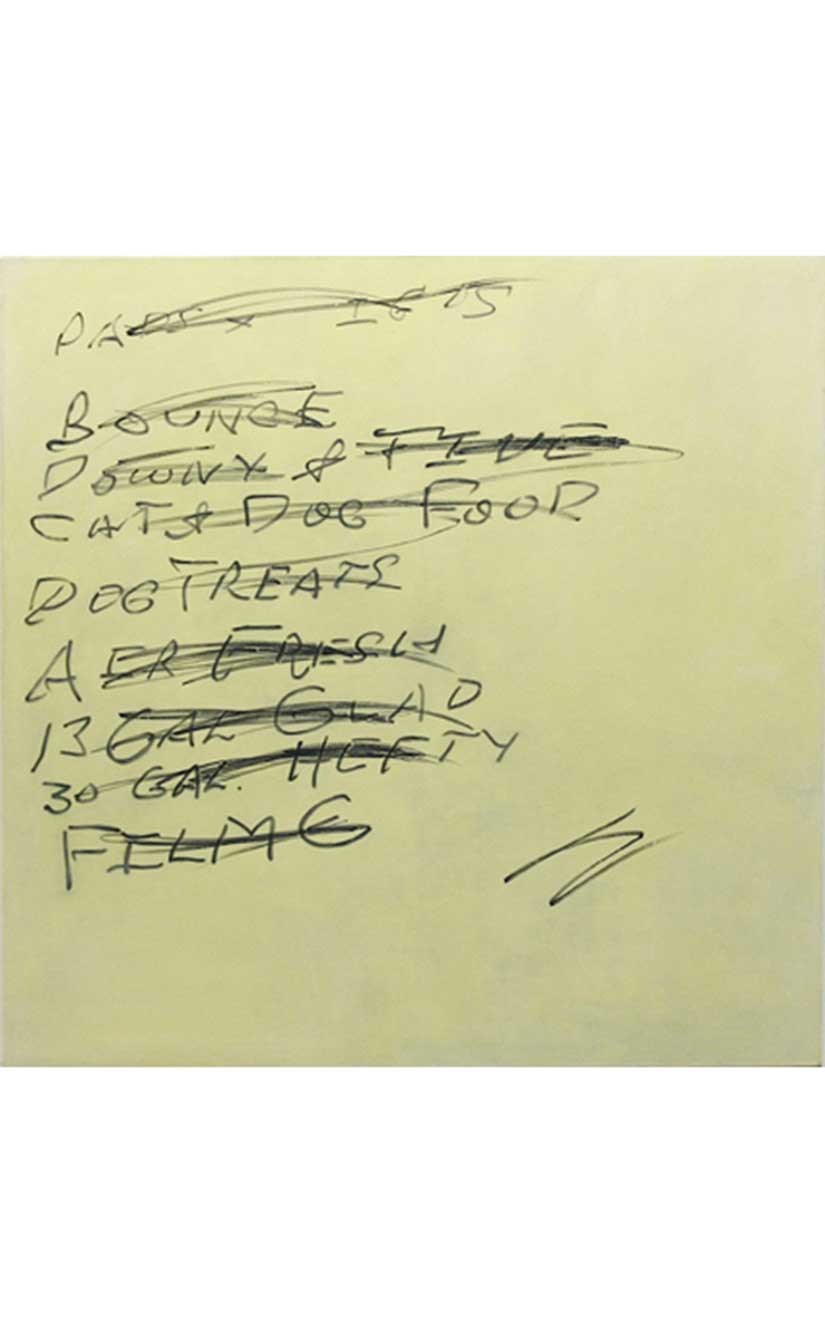 BOUNCE
DOWNY & FIVE
CAT & DOG FOOD
DOG TREATS
AER FRESH
13 GAL GLAD
30 GAL. HEFTY
FILM 6